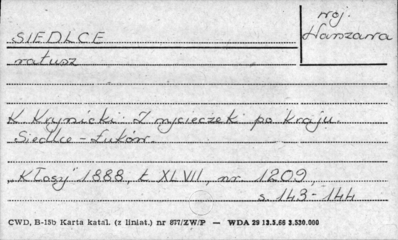 SIEDLCE
woj.
Warszawa
ratusz
K. Krynicki: Z wycieczek po kraju.
Siedlce - Łuków.
"Kłosy" 1888, t XLVII, nr 1209,
s. 143-144
CWD, B-15b Karta katal. (z liniat.) nr 877/ZW/P — WDA 29 12.3.66 3.530.000